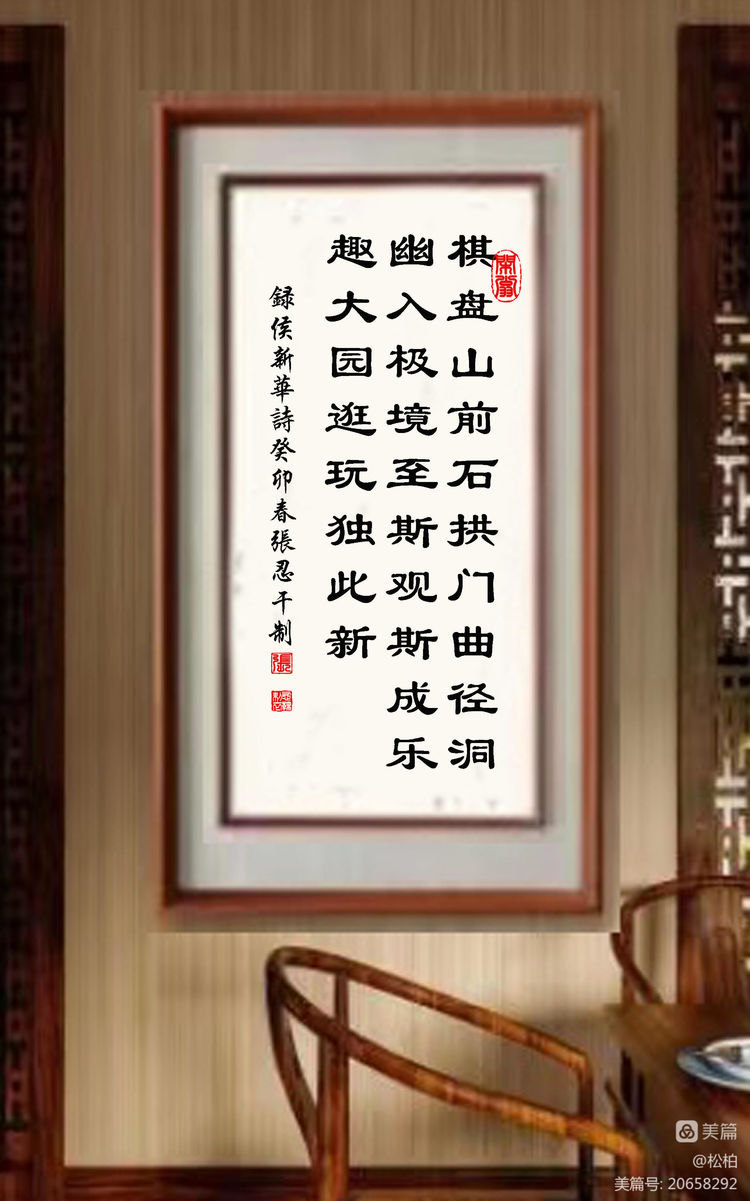 棋盘山前石拱门曲径洞
幽入极境至斯观斯成乐
趣大园逛玩独此新
録侯新華詩癸卯春張忍干制
張
美篇
@松柏
美篇号: 20658292